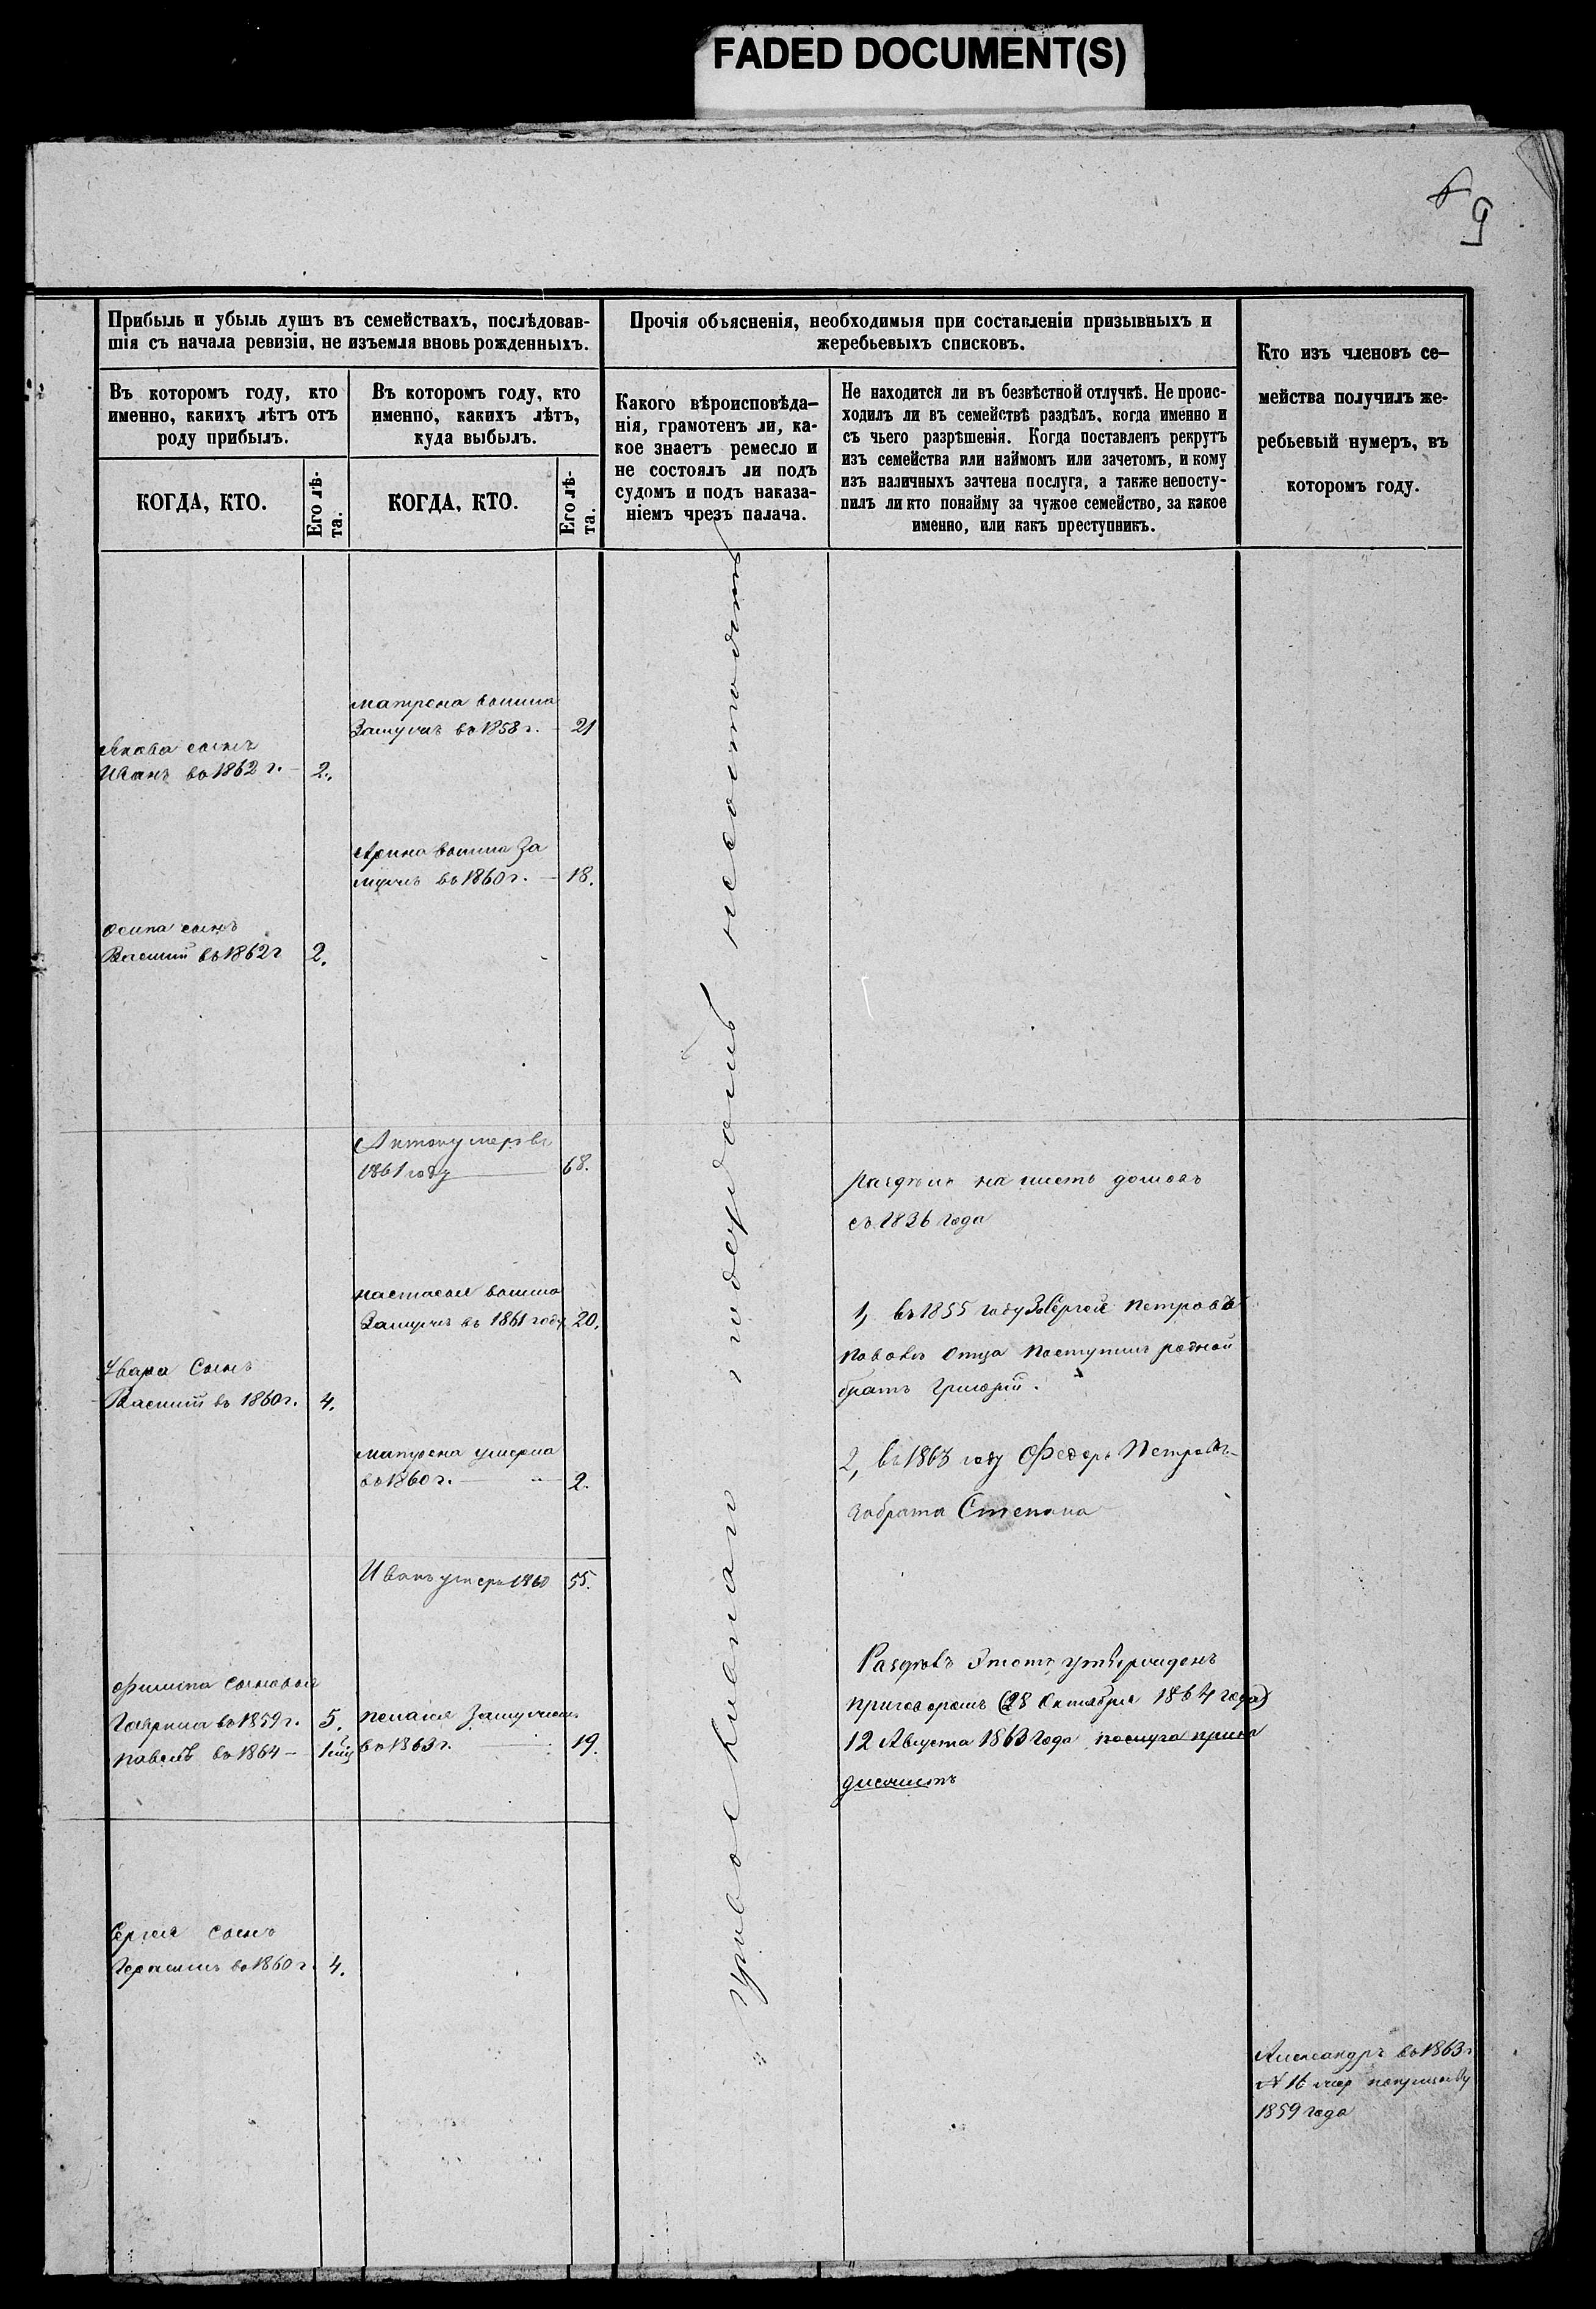 FADED DOCUMENT(S)
9
Прибыль и убыль душъ въ семействахъ, послѣдовав-
шія съ начала ревизіи, не изъемля вновь рожденныхъ.
Въ которомъ году, кто
именно, какихъ лѣтъ отъ
роду прибылъ.
КОГДА, КТО.
Его лѣ-
та.
Въ которомъ году, кто
именно, какихъ лѣтъ,
куда выбылъ.
КОГДА, КТО.
Его лѣ-
та.
Прочія объясненія, необходимыя при составленіи призывныхъ и
жеребьевыхъ списковъ.
Какого вѣроисповѣда-
нія, грамотенъ ли, ка-
кое знаетъ ремесло и
не состоялъ ли подъ
судомъ и подъ наказа-
ніемъ чрезъ палача.
Не находится ли въ безвѣстной отлучкѣ. Не проис-
ходилъ ли въ семействѣ раздѣлъ, когда именно и
съ чьего разрѣшенія. Когда поставленъ рекрутъ
изъ семейства или наймомъ или зачетомъ, и кому
изъ наличныхъ зачтена послуга, а также непосту-
пилъ ли кто понайму за чужое семейство, за какое
именно, или какъ преступникъ.
Кто изъ членовъ се-
мейства получилъ же-
ребьевый нумеръ, въ
которомъ году.
матрена вышла
Замужъ въ 1858 г. 21
Якова сынъ
Иванъ въ 1862 г. – 2.
Арина вышла За
мужъ въ 1860 г. – 18.
осипа сынъ
Василий въ 1862 г 2.
Антонъ умеръ въ
1861 году 68.
раздѣлъ на шесть домовъ
съ 1836 года
настасья вышла
Замужъ въ 1861 году 20.
1, въ 1855 году За Сергея петрова
отца поступилъ родной
братъ григорий.
Ивана Сынъ
Василий въ 1860 г. 4.
матрена умерла
въ 1860 г. 2.
2, въ 1863 году Федоръ Петровъ
забрата Степана
Иванъ умеръ 1860 55.
Раздѣлъ Этотъ утвержденъ
приговоромъ (28 Октября 1864 года)
12 Августа 1863 года послуга
филипа сыновья
Гаврила въ 1859 г. 5.
павелъ въ 1864 –
пелагея Замужъ
въ 1863 г. 19.
Сергея сынъ
Герасимъ въ 1860 г. 4.
православнаго подсудомъ несостоитъ
Александръ въ 1863 г
N 16
1859 года